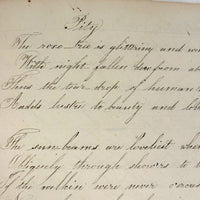 Pity
The rose tree is glittering and
With night fallen dew from
Thus the tear drop of human
Adds lustre to beauty and
The sun beams are loveliest when
through showers to
If the welkin were never